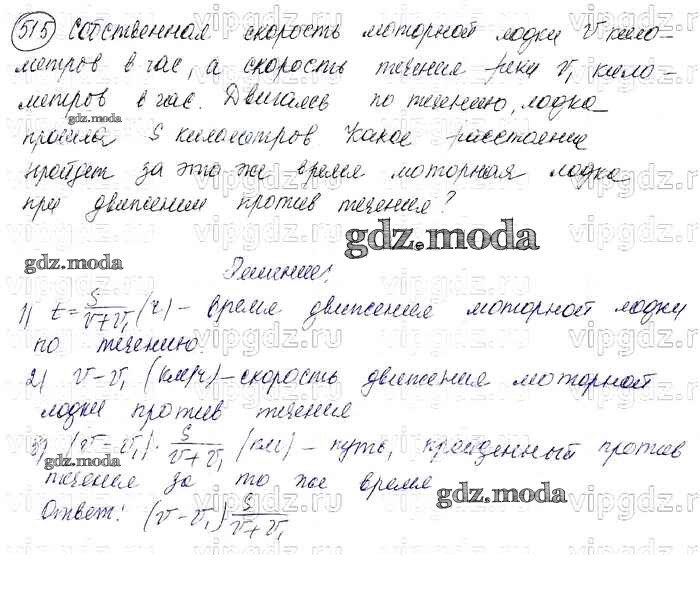 515 Собственная скорость моторной лодки v кило-
метров в час, а скорость течения реки v₁ кило-
метров в час. Двигаясь по течению, лодка
gdz.moda
прошла S километров. Какое расстояние
пройдет за это же время моторная лодка
при движении против течения?
gdz.moda
gdz.moda
Решение:
1) t = S/(v+v₁) (ч) – время движения моторной лодки
по течению.
2) v – v₁ (км/ч) – скорость движения моторной
лодки против течения
3) (v – v₁) · S/(v+v₁) (км) – путь, пройденный против
gdz.moda
течения за то же время
gdz.moda
Ответ: (v – v₁) S/(v+v₁)
vipgdz.ru